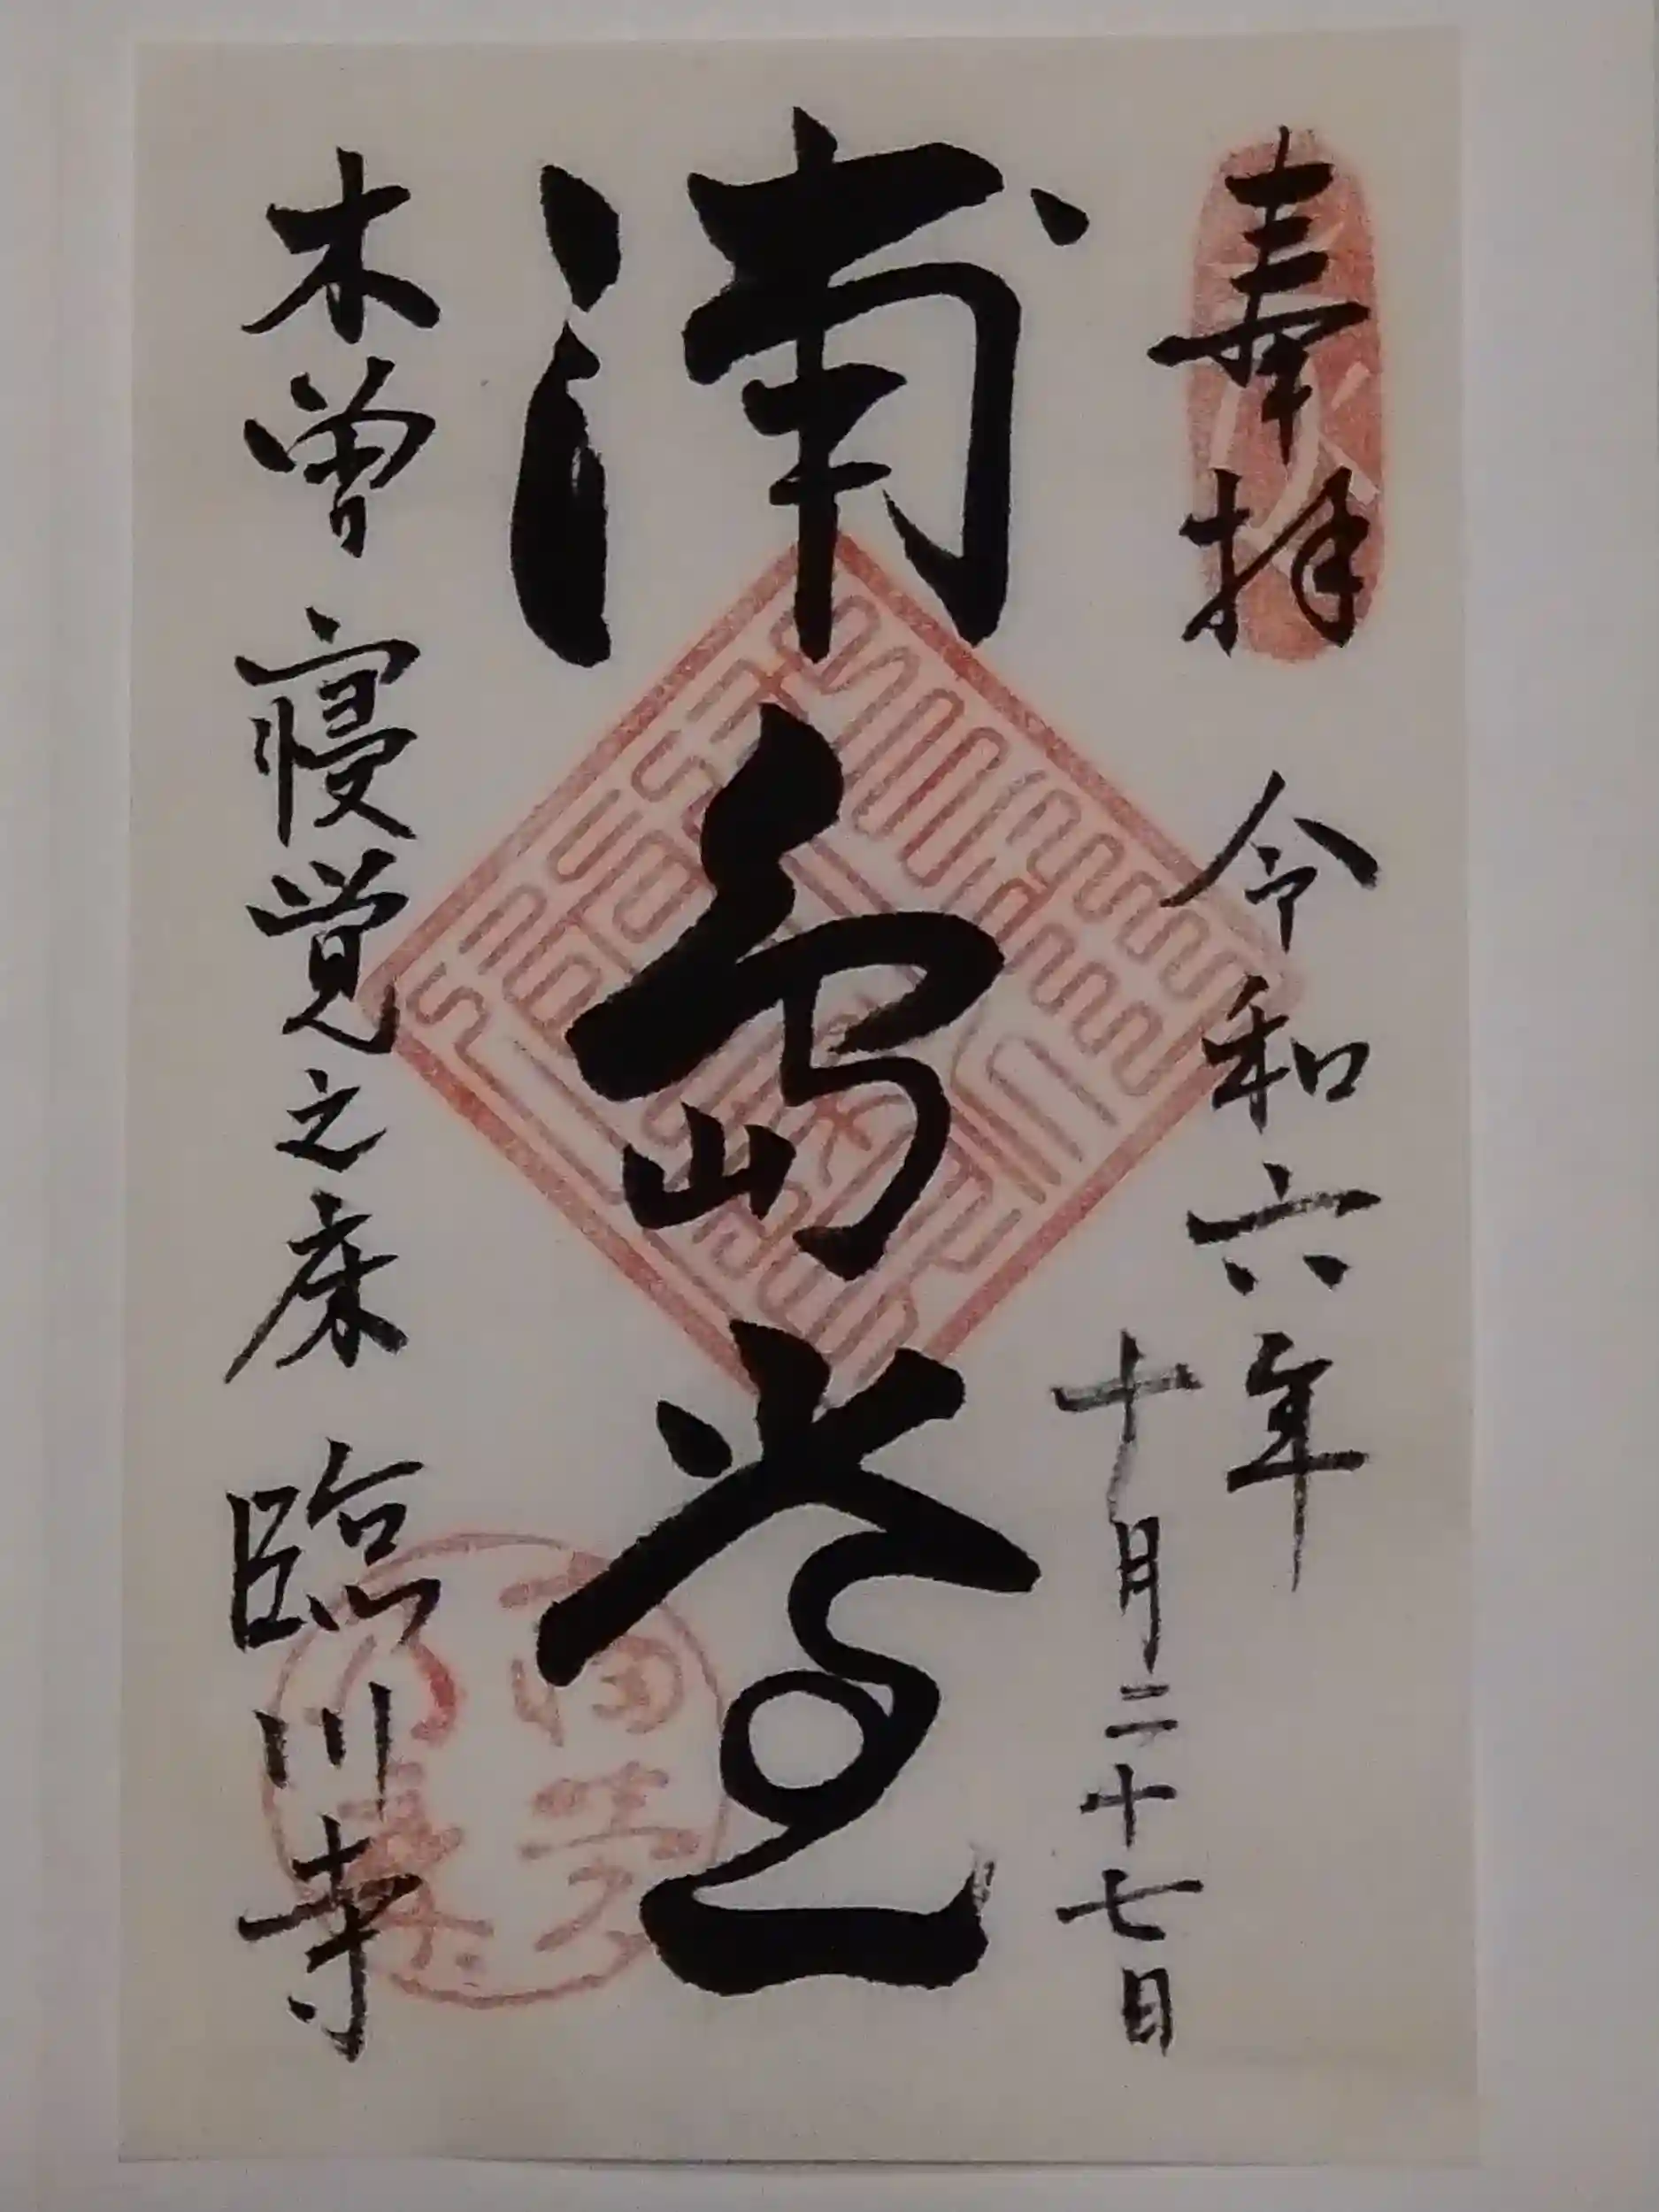 奉拝 令和六年
十月二十七日
浦島堂
木曽 寝覚之床 臨川寺